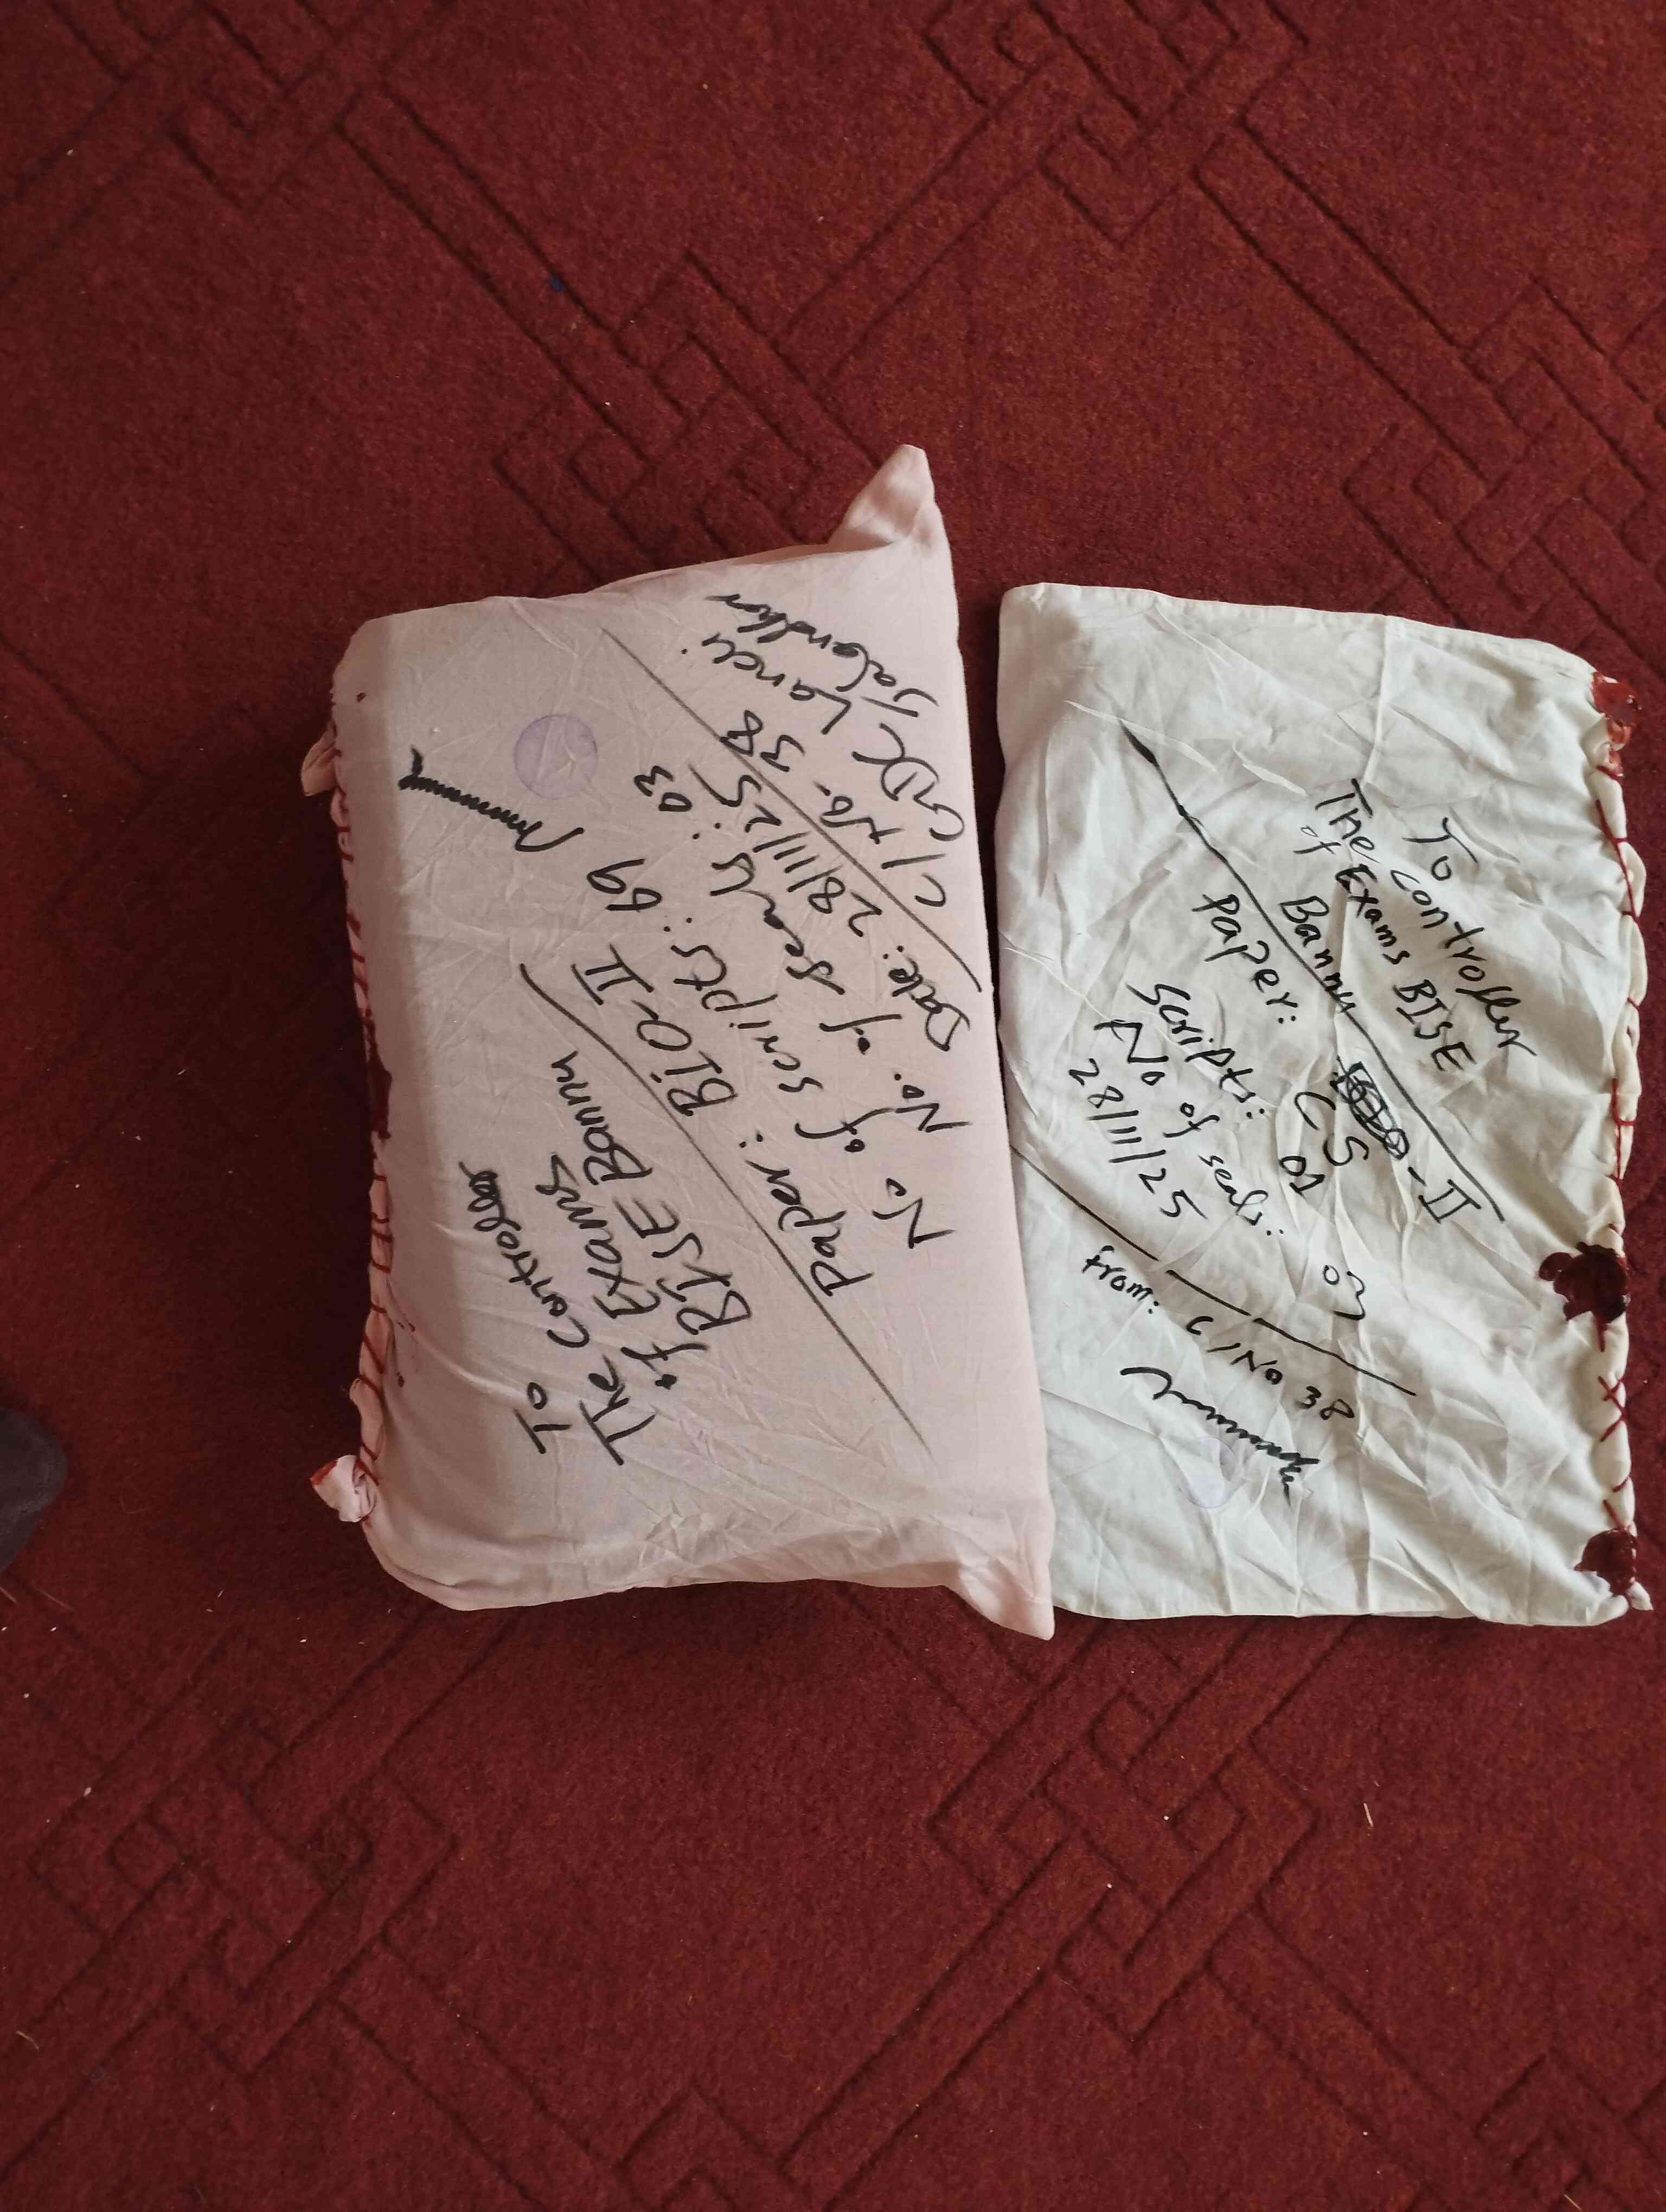 To
The Controller
of Exams
BISE Bannu
Paper: BIO-II
No of scripts: 69
No. of seals: 03
Date: 28/11/25
C/No. 38
GDC Landi
Jalandhar
To
The controller
of Exams BISE
Bannu
Paper: CS-II
Scripts: 01
No of seals: 03
28/11/25
from: C/No 38